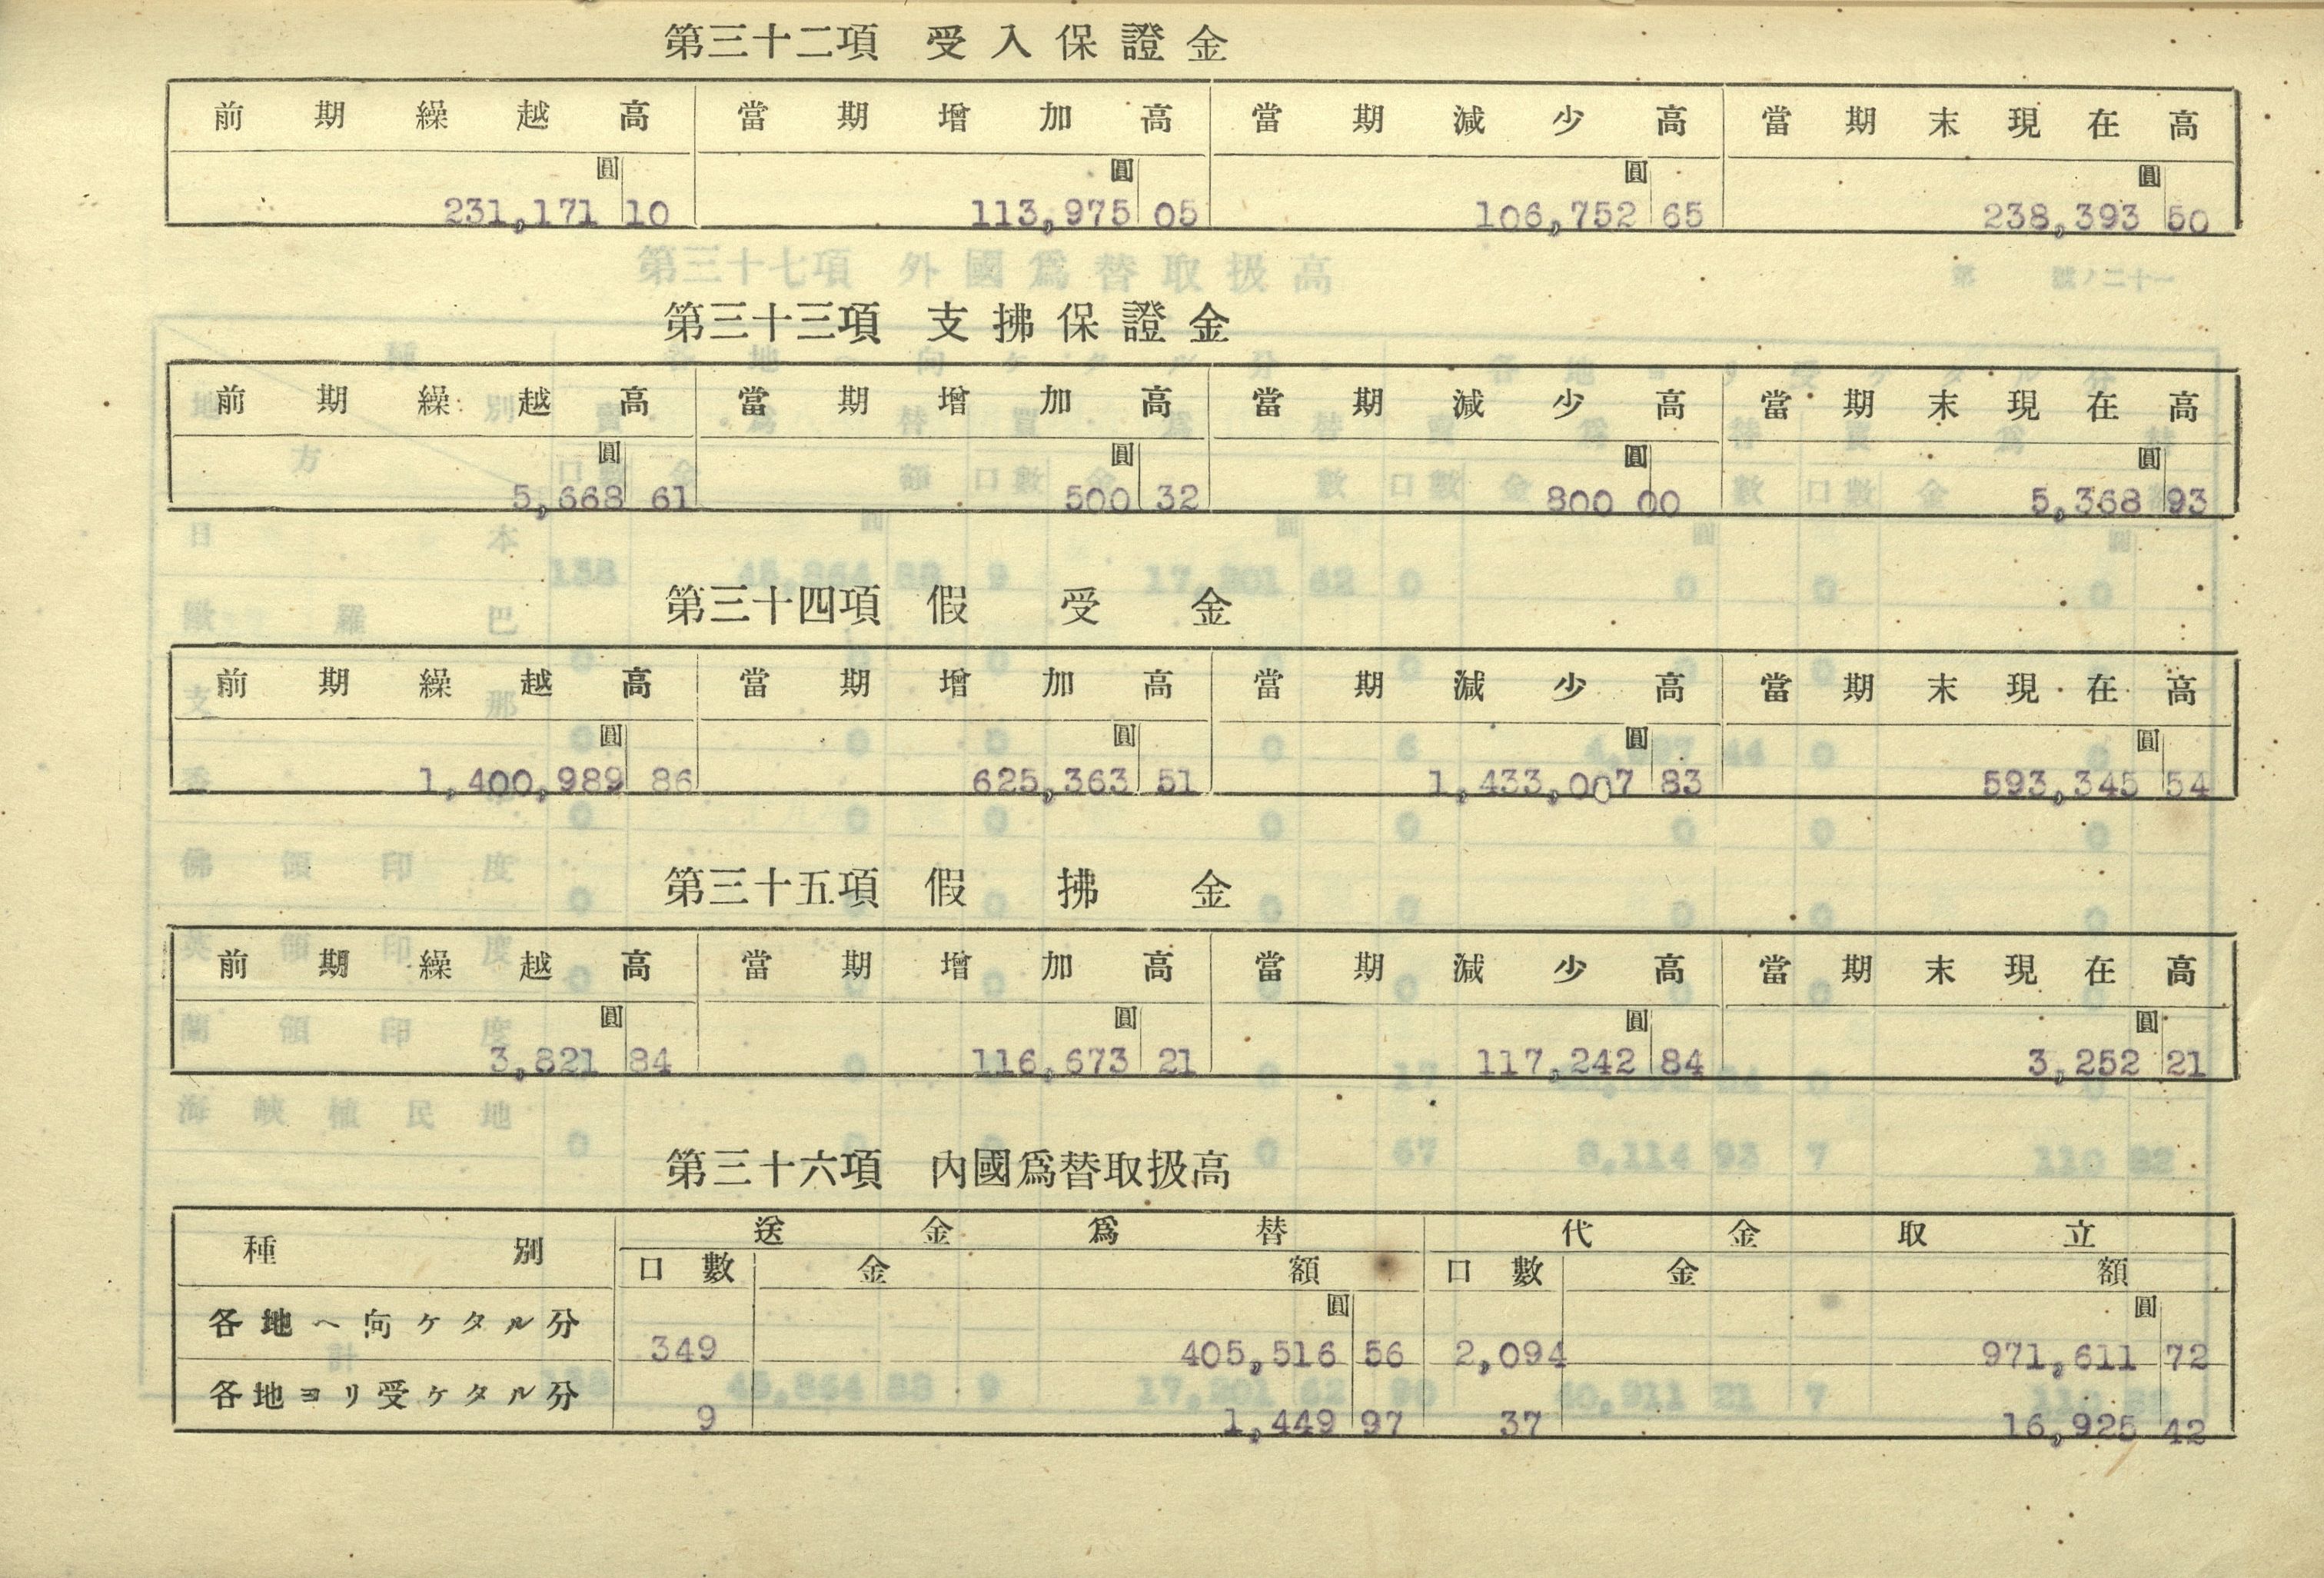 第三十二項 受入保證金
前期繰越高 當期增加高 當期減少高 當期末現在高
圓 圓 圓 圓
231,171 10 113,975 05 106,752 65 238,393 50
第三十三項 支拂保證金
前期繰越高 當期增加高 當期減少高 當期末現在高
圓 圓 圓 圓
5,668 61 500 32 800 00 5,368 93
第三十四項 假受金
前期繰越高 當期增加高 當期減少高 當期末現在高
圓 圓 圓 圓
1,400,989 86 625,363 51 1,433,007 83 593,345 54
第三十五項 假拂金
前期繰越高 當期增加高 當期減少高 當期末現在高
圓 圓 圓 圓
3,821 84 116,673 21 117,242 84 3,252 21
第三十六項 內國爲替取扱高
種別 送金爲替 代金取立
口數 金額 口數 金額
圓 圓
各地ヘ向ケタル分 349 405,516 56 2,094 971,611 72
各地ヨリ受ケタル分 9 1,449 97 37 16,925 42